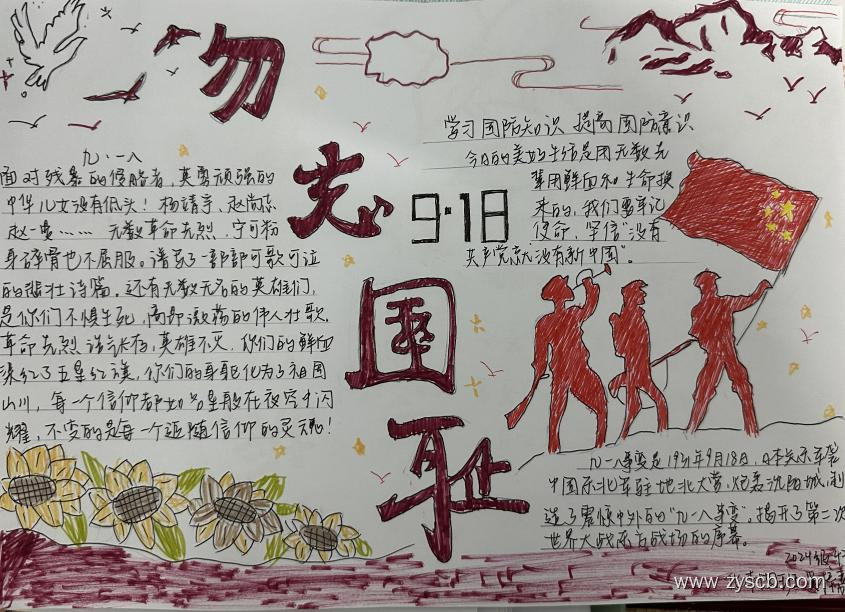 勿忘国耻
9·18
九·一八
面对残暴的侵略者,英勇顽强的
中华儿女没有低头!杨靖宇、赵尚志
赵一曼……无数革命先烈,宁可粉
身碎骨也不屈服。谱写了一部部可歌可泣
的悲壮诗篇。还有无数无名的英雄们,
是你们不惧生死,高昂激荡的伟人壮歌,
革命先烈浩气长存,英雄不灭,你们的鲜血
染红了五星红旗,你们的身躯化为了祖国
山川,每一个信仰者都如名星般在夜空中闪
耀,不变的是每一个追随信仰的灵魂!
学习国防知识 提高国防意识
今日的美好生活是用无数先
辈用鲜血和生命换
来的,我们要牢记
使命,坚信"没有
共产党就没有新中国"。
九一八事变是1931年9月18日,日本关东军袭
中国东北军驻地北大营,炮轰沈阳城,制
造了震惊中外的"九一八事变",揭开了第二次
世界大战东方战场的序幕。
2024级
www.zyscb.com